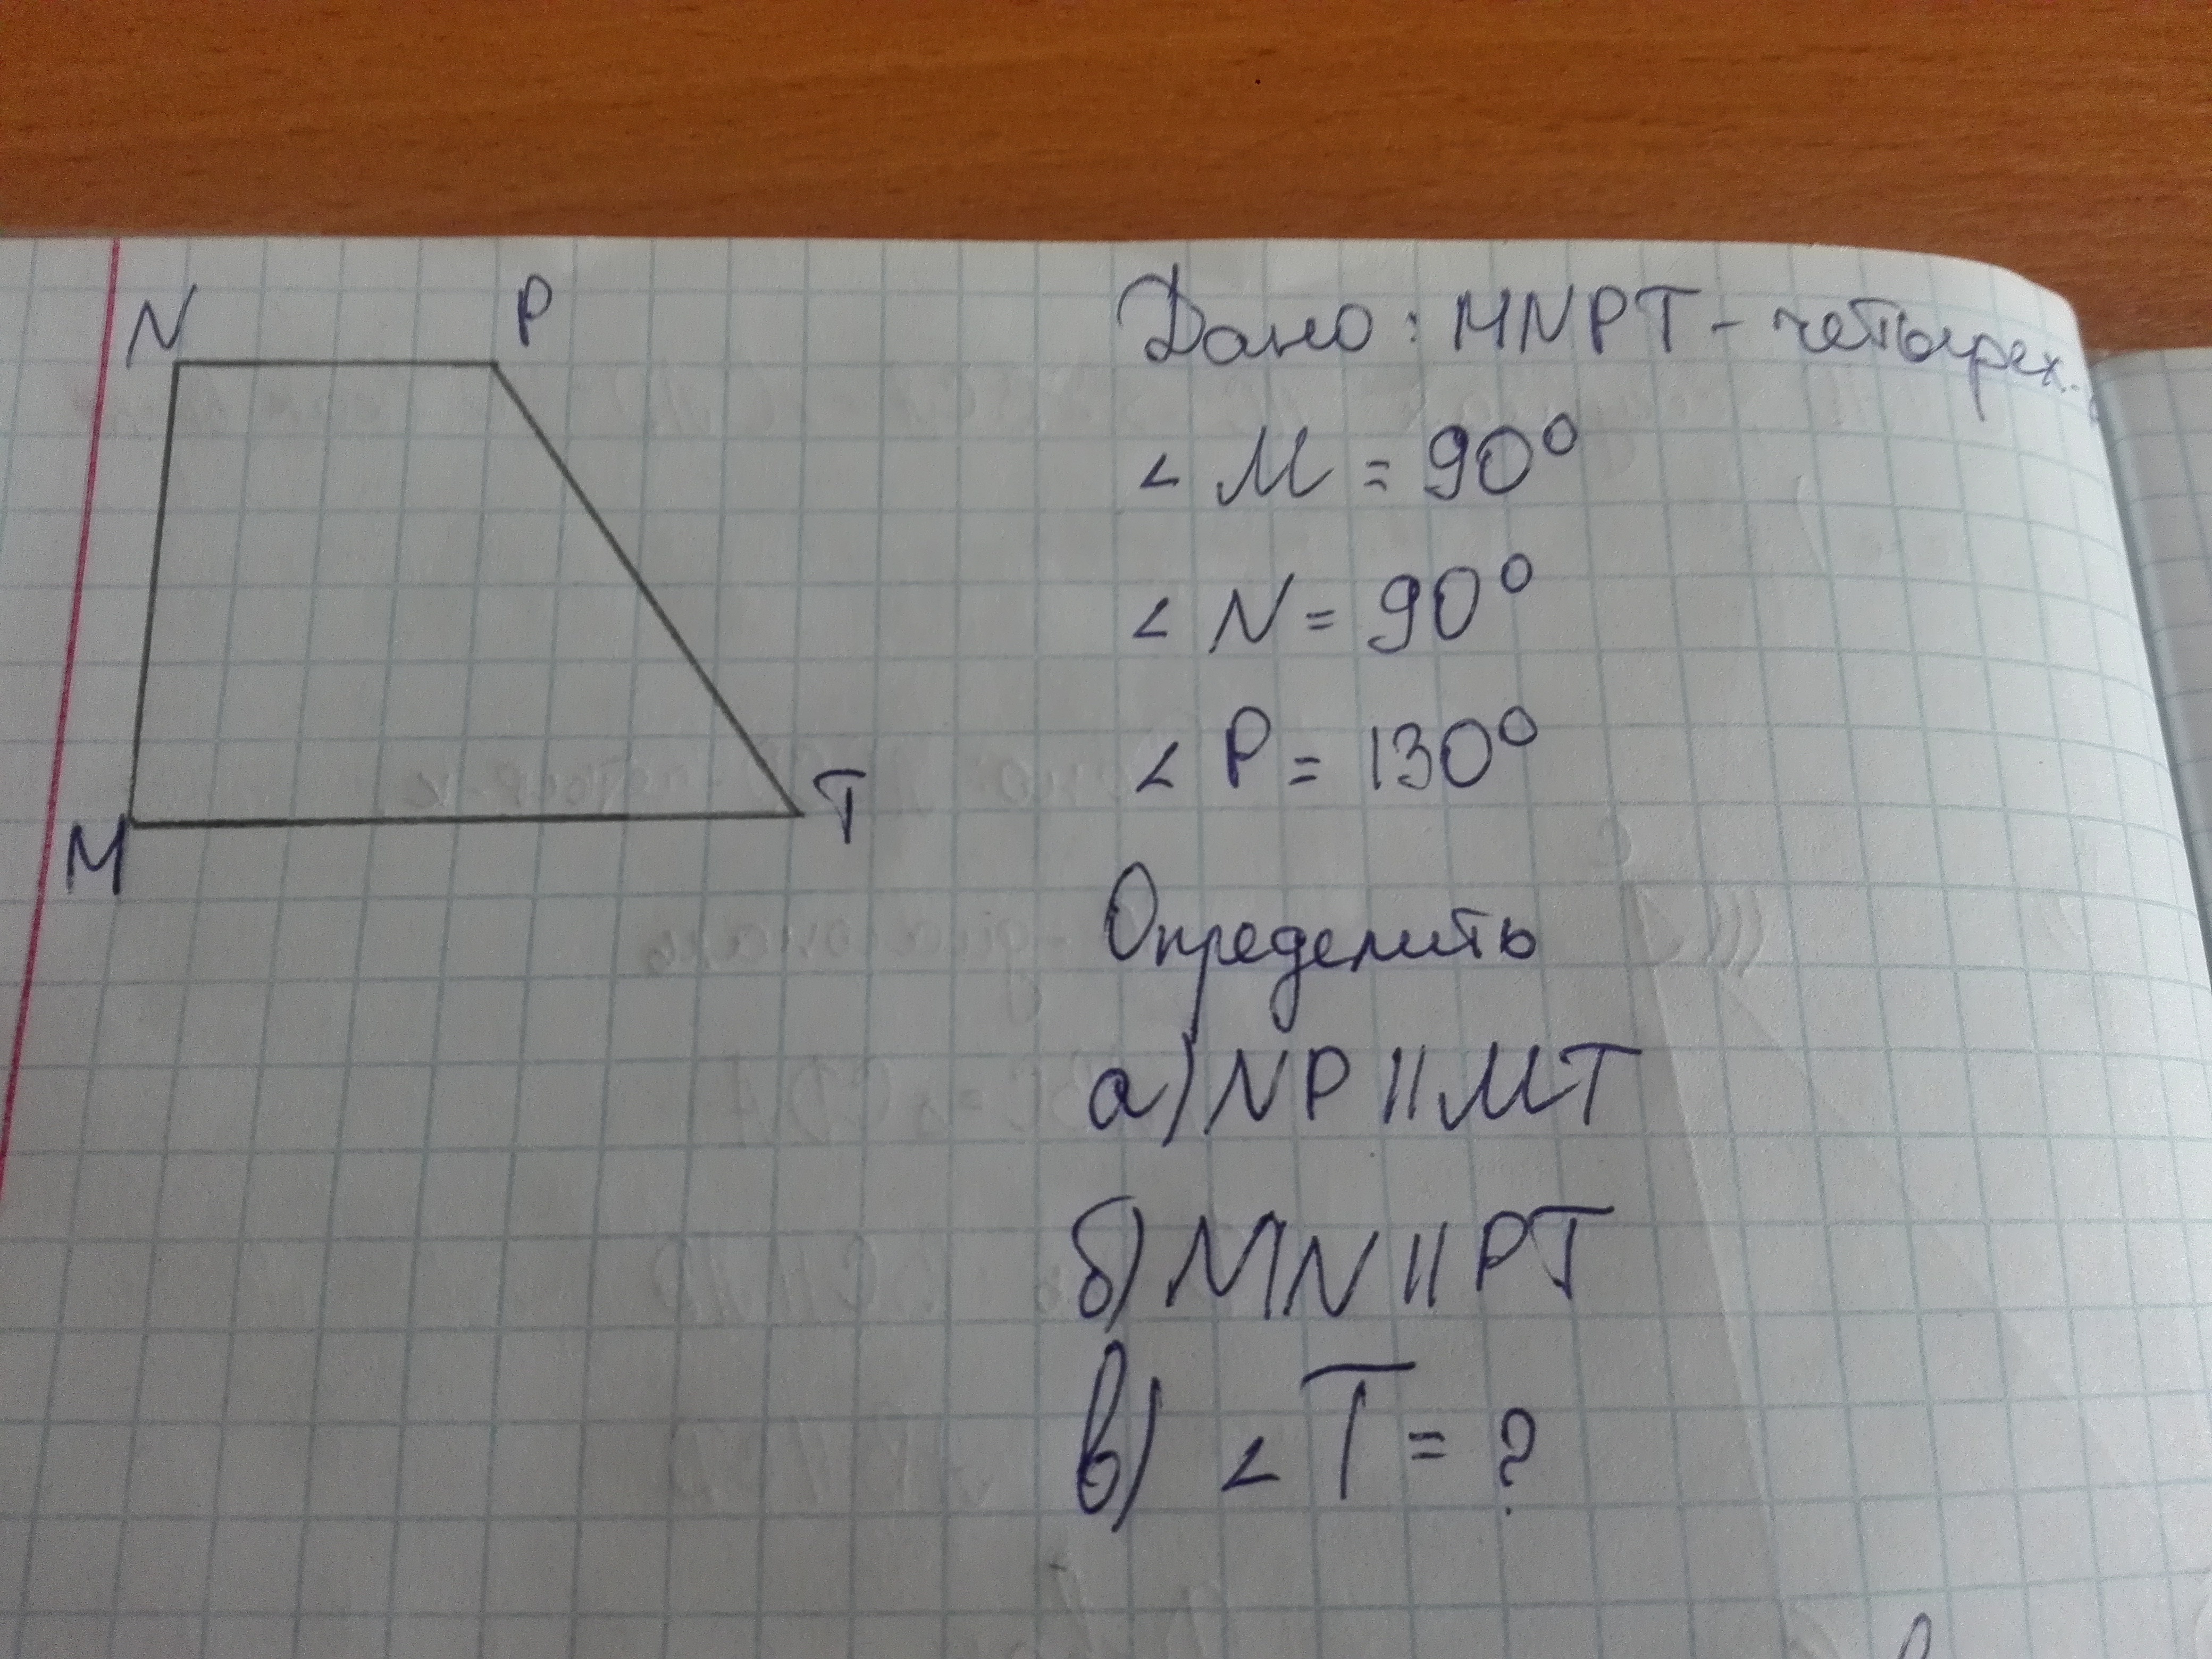 N P
M T
Дано: MNPT - четырех.
∠ M = 90°
∠ N = 90°
∠ P = 130°
Определить
а) NP || MT
б) MN || PT
в) ∠ T = ?